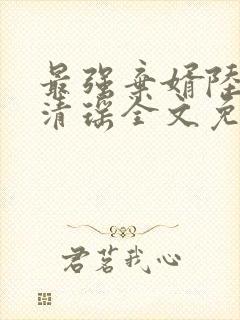 最强弃婿陆
清瑶全文免
君茗我心